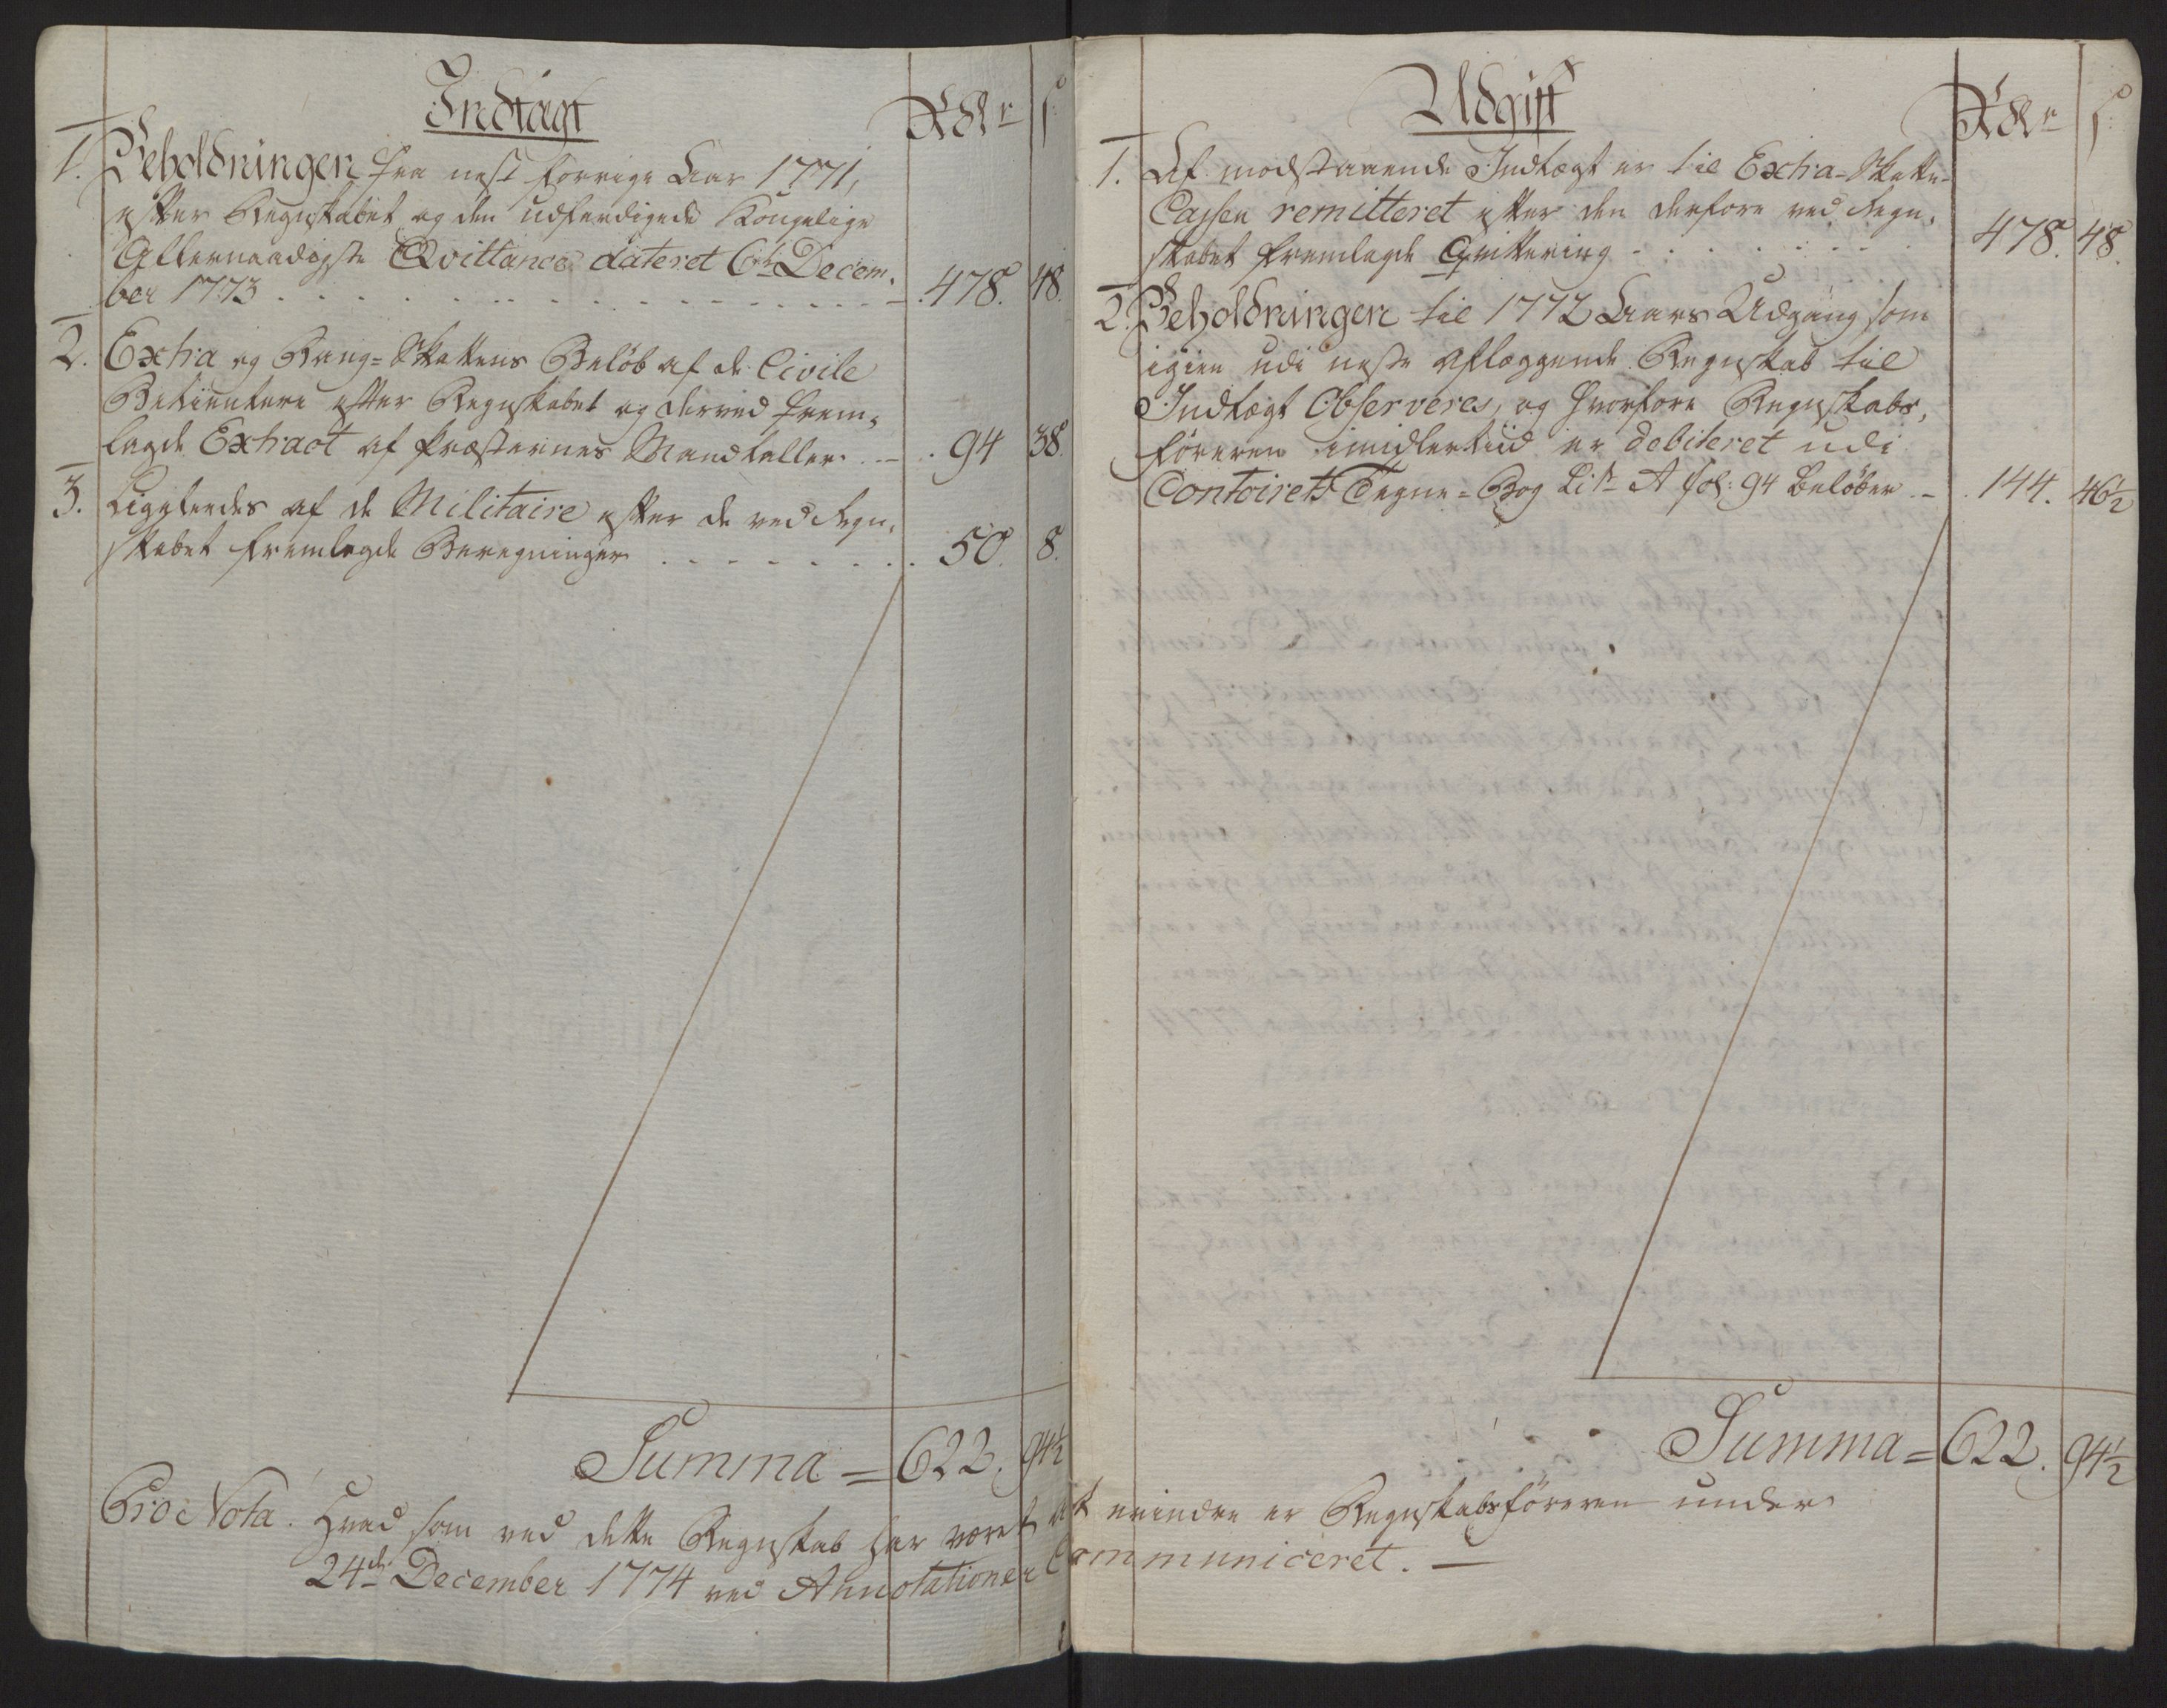 Indtægt
Rdlr ſ:
1. Beholdningen fra nest forrige Aar 1771,
efter Regnskabet og den udferdigede Kongelige
Allernaadigste Qvittance dateret 6te Decem-
ber 1773 . . . . 478. 48.
2. Extra og Rang-Skattens Beløb af de Civile
Betiente efter Regnskabet og derved frem-
lagde Extract af Præsternes Mandtaller . . 94 38.
3. Ligeledes af de Militaire efter de ved Regn-
skabet fremlagde Beregninger . . . . 50. 8.
Summa = 622. 94½
Pro Nota. Hvad som ved dette Regnskab har været at erindre er Regnskabsføreren under
24de December 1774 ved Annotationer Communiceret. —
Udgift
Rdlr ſ:
1. Af modstaaende Indtægt er til Extra-Skatte-
Cassen remitteret efter den derfore ved Regn-
skabet fremlagde Qvittering . . . . 478. 48.
2. Beholdningen til 1772 Aars Udgang som
igien udi neste aflæggende Regnskab til
Indtægt Observeres, og hvorfore Regnskabs-
føreren imidlertiid er debiteret udi
Contoirets Tegne-Bog Litr A fol: 94 beløber . – . 144. 46½
Summa = 622. 94½